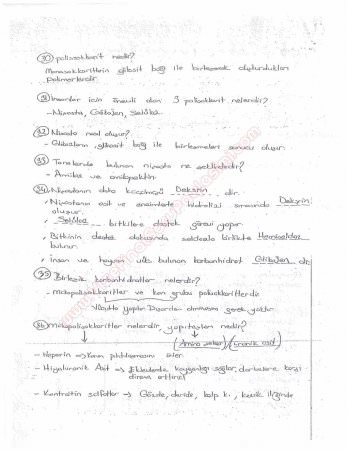 30) polisakkarit nedir?
Monosakkaritlerin glikozit bağ ile birleşerek oluşturdukları
Polimerlerdir.
31) İnsanlar için önemli olan 3 polisakkarit nelerdir?
- Nişasta, Glikojen, Selüloz.
32) Nişasta nasıl oluşur?
- Glikozların, glikozit bağ ile birleşmeleri sonucu oluşur.
33) Tanelerde bulunan nişasta ne şekildedir?
- Amiloz ve amilopektin.
34) Nişastanın daha küçüğü Dekstrin dir.
, Nişastanın asit ve enzimlerle hidrolizi sırasında Dekstrin
oluşur.
, Selüloz bitkilere destek görevi yapar.
, Bitkinin destek dokusunda selülozla birlikte Hemiselüloz
bulunur.
, İnsan ve hayvan vüc. bulunan karbonhidrat Glikojen dir.
35) Birleşik karbonhidratlar nelerdir?
- mukopolisakkaritler ve kan grubu polisakkaritleridir.
36) mukopolisakkaritler nelerdir, yapıtaşları nedir?
(Amino şeker) (Uronik asit)
- Heparin → Kanın pıhtılaşmasını önler.
- Hiyaluronik Asit → Eklemlerde kayganlığı sağlar, darbelere karşı
direnci arttırır.
- Kontraitin sülfatlar → Gözde, deride, kalp k., kemik iliğinde